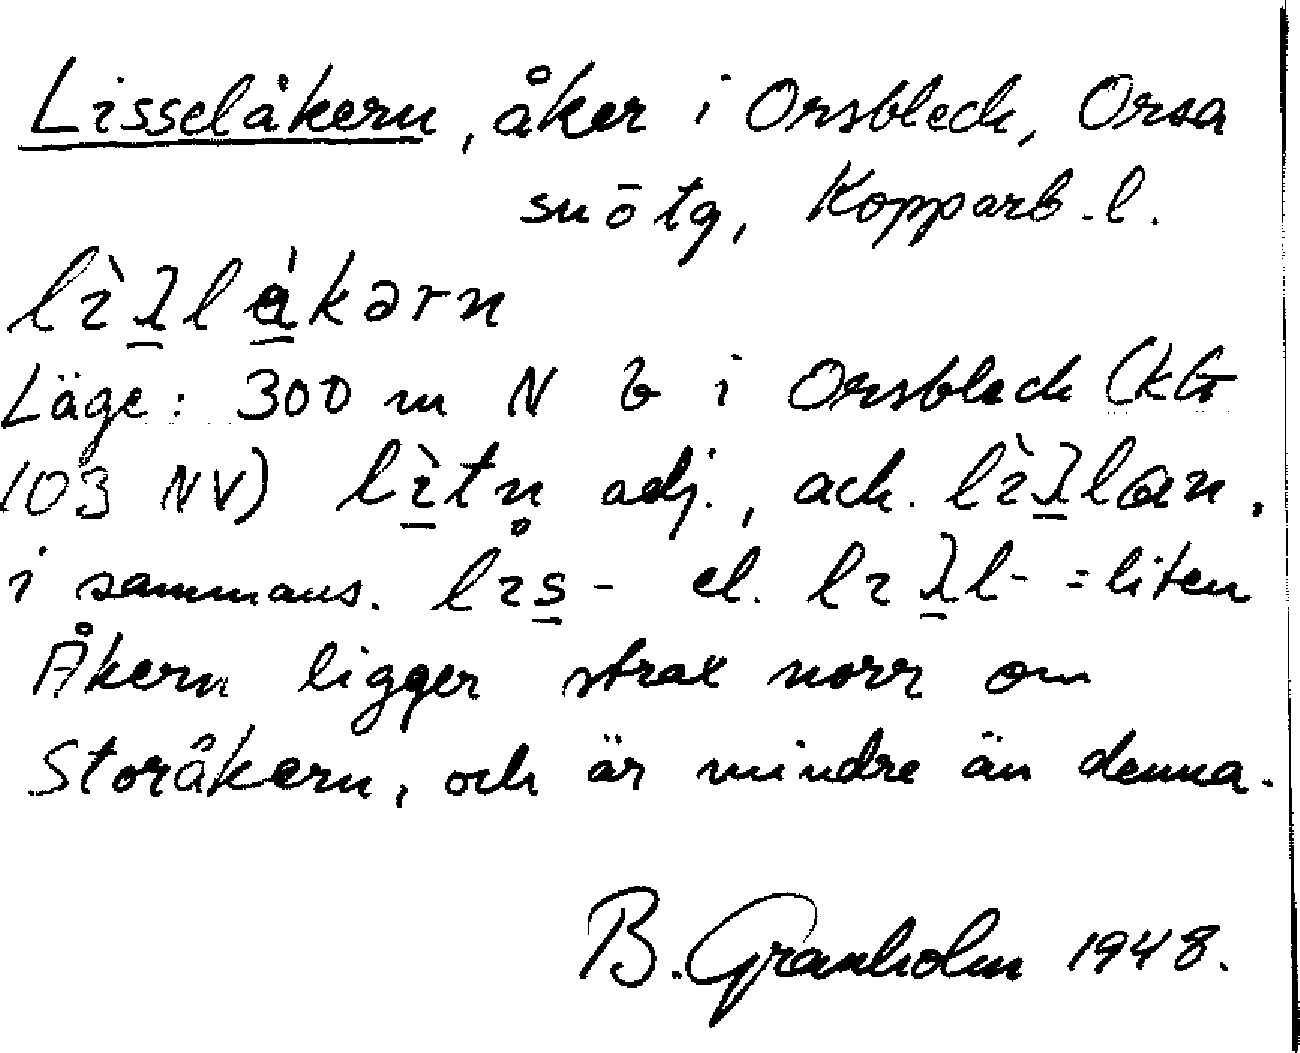 Lisselåkern, åker i Orsbleck, Orsa
sn ö tg, Kopparb. l.
kərn
Läge: 300 m N b i Orsbleck (kbr
103 NV) adj., ack.
i sammans. el. = liten
Åkern ligger strax norr om
Storåkern, och är mindre än denna.
B. Granholm 1948.